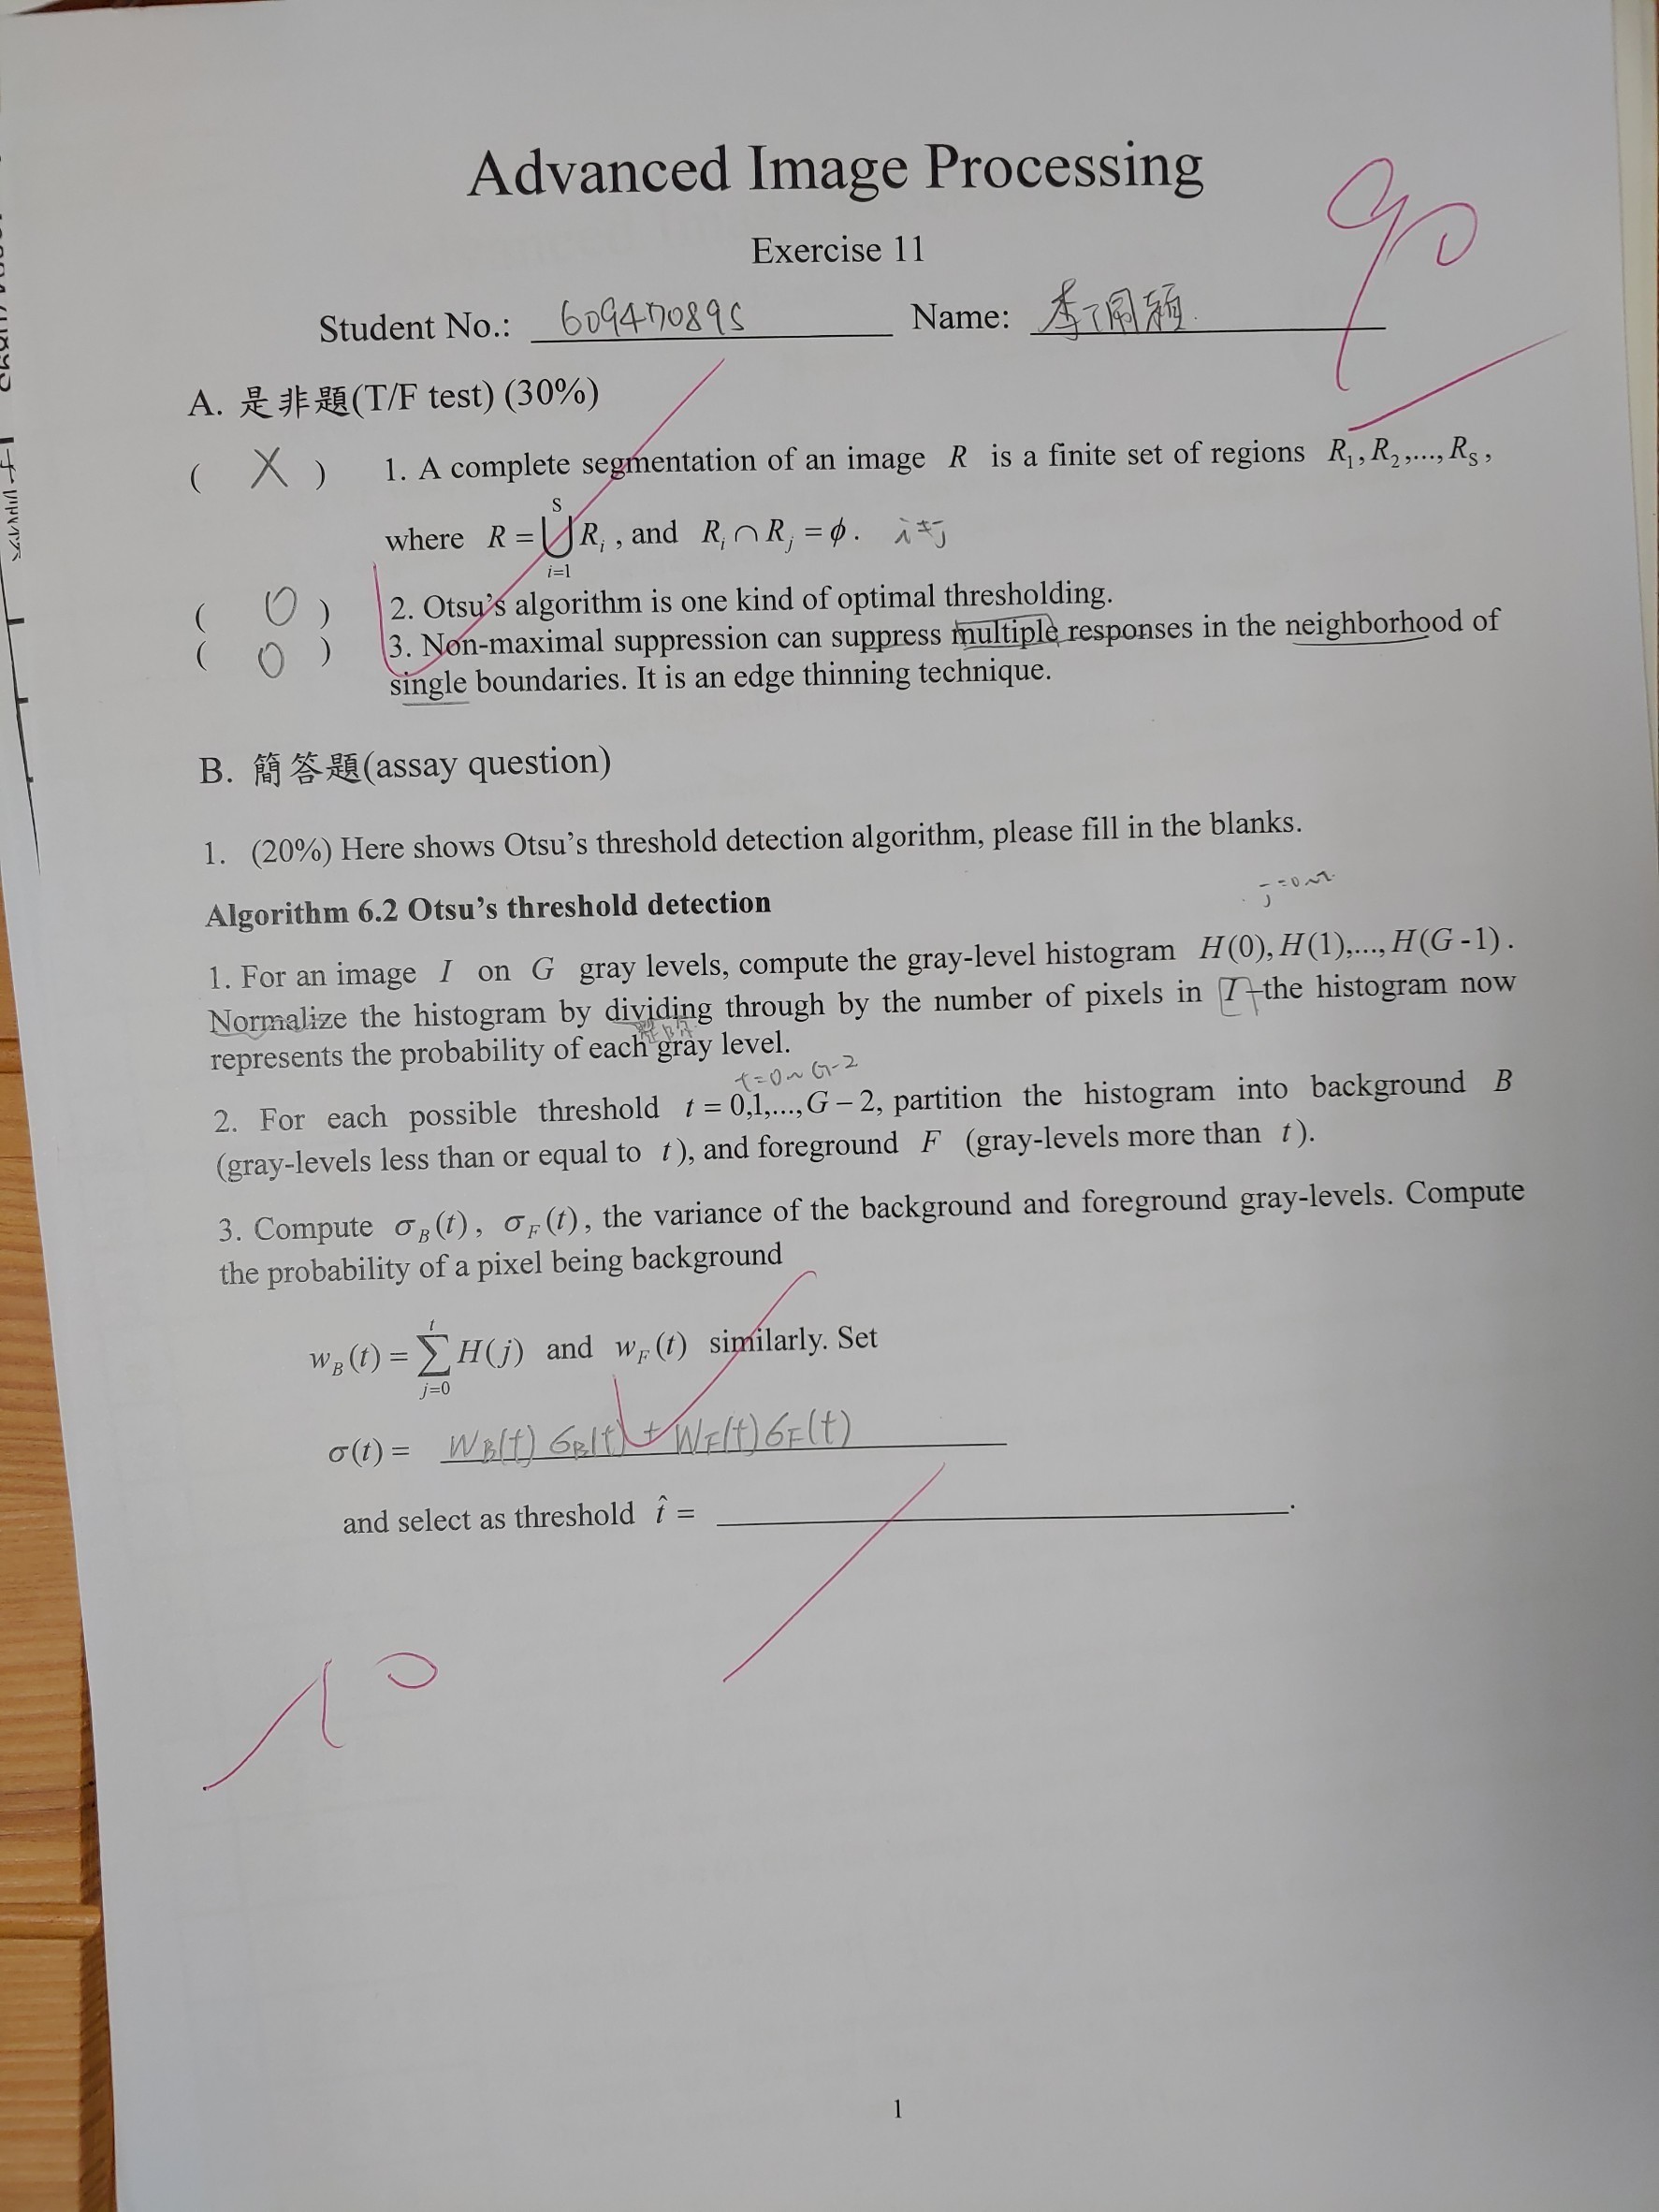 Advanced Image Processing
90
Exercise 11
Student No.: 609470895 Name: 李 穎
A. 是非題(T/F test) (30%)
( X ) 1. A complete segmentation of an image R is a finite set of regions R₁, R₂,..., R_S,
where R = ⋃_{i=1}^{S} R_i, and R_i ∩ R_j = ϕ. i≠j
( O ) 2. Otsu's algorithm is one kind of optimal thresholding.
( O ) 3. Non-maximal suppression can suppress multiple responses in the neighborhood of
single boundaries. It is an edge thinning technique.
B. 簡答題(assay question)
1. (20%) Here shows Otsu's threshold detection algorithm, please fill in the blanks.
Algorithm 6.2 Otsu's threshold detection
1. For an image I on G gray levels, compute the gray-level histogram H(0), H(1),..., H(G-1).
Normalize the histogram by dividing through by the number of pixels in I–the histogram now
represents the probability of each gray level.
t=0~G-2
2. For each possible threshold t = 0,1,...,G−2, partition the histogram into background B
(gray-levels less than or equal to t), and foreground F (gray-levels more than t).
3. Compute σ_B(t), σ_F(t), the variance of the background and foreground gray-levels. Compute
the probability of a pixel being background
w_B(t) = ∑_{j=0}^{t} H(j) and w_F(t) similarly. Set
σ(t) = W_B(t) σ_B(t) + W_F(t) σ_F(t)
and select as threshold t̂ = .
10
1